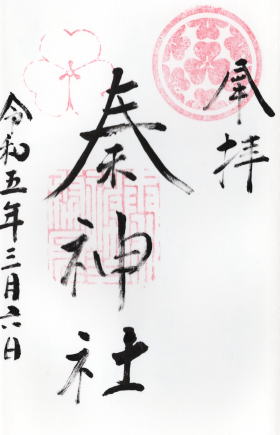 奉拝
秦神社
令和五年三月六日